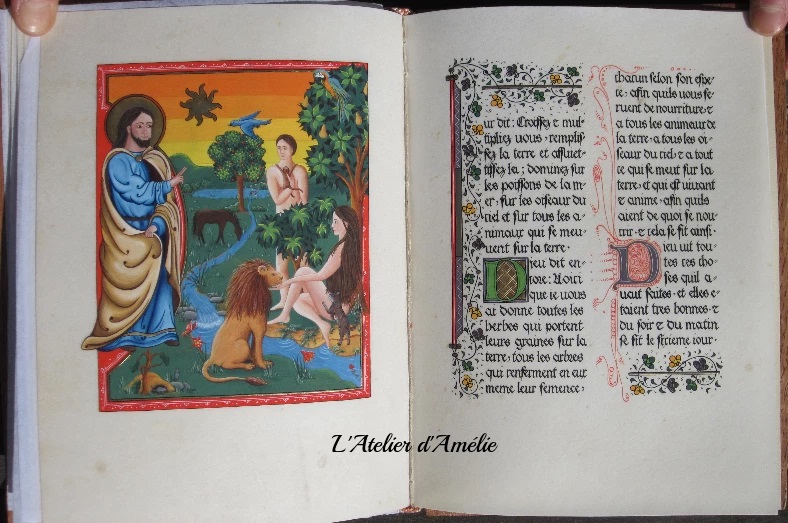 ur dit: Croissez et mul
tipliez vous, remplis
sez la terre et assuiet
tissez la; dominez sur
les poissons de la m
er, sur les oiseaux du
ciel et sur tous les a
nimaux qui se meu
uent sur la terre.
Dieu dit en
core: Uoici
que ie uous
ai donne toutes les
herbes qui portent
leurs graines sur la
terre, tous les arbres
qui renferment en eux
meme leur semence,
chacun selon son espe
ce, afin quils uous se
ruent de nourriture, et
a tous les animaux de
la terre, a tous les oi
seaux du ciel, et a tout
ce qui se meut sur la
terre, et qui est uiuant
et anime, afin quils
aient de quoi se nou
rrir et cela se fit ainsi.
Dieu uit tou
tes ces cho
ses quil a
uait faites, et elles e
taient tres bonnes, et
du soir et du matin
se fit le sixieme iour.
L'Atelier d'Amélie